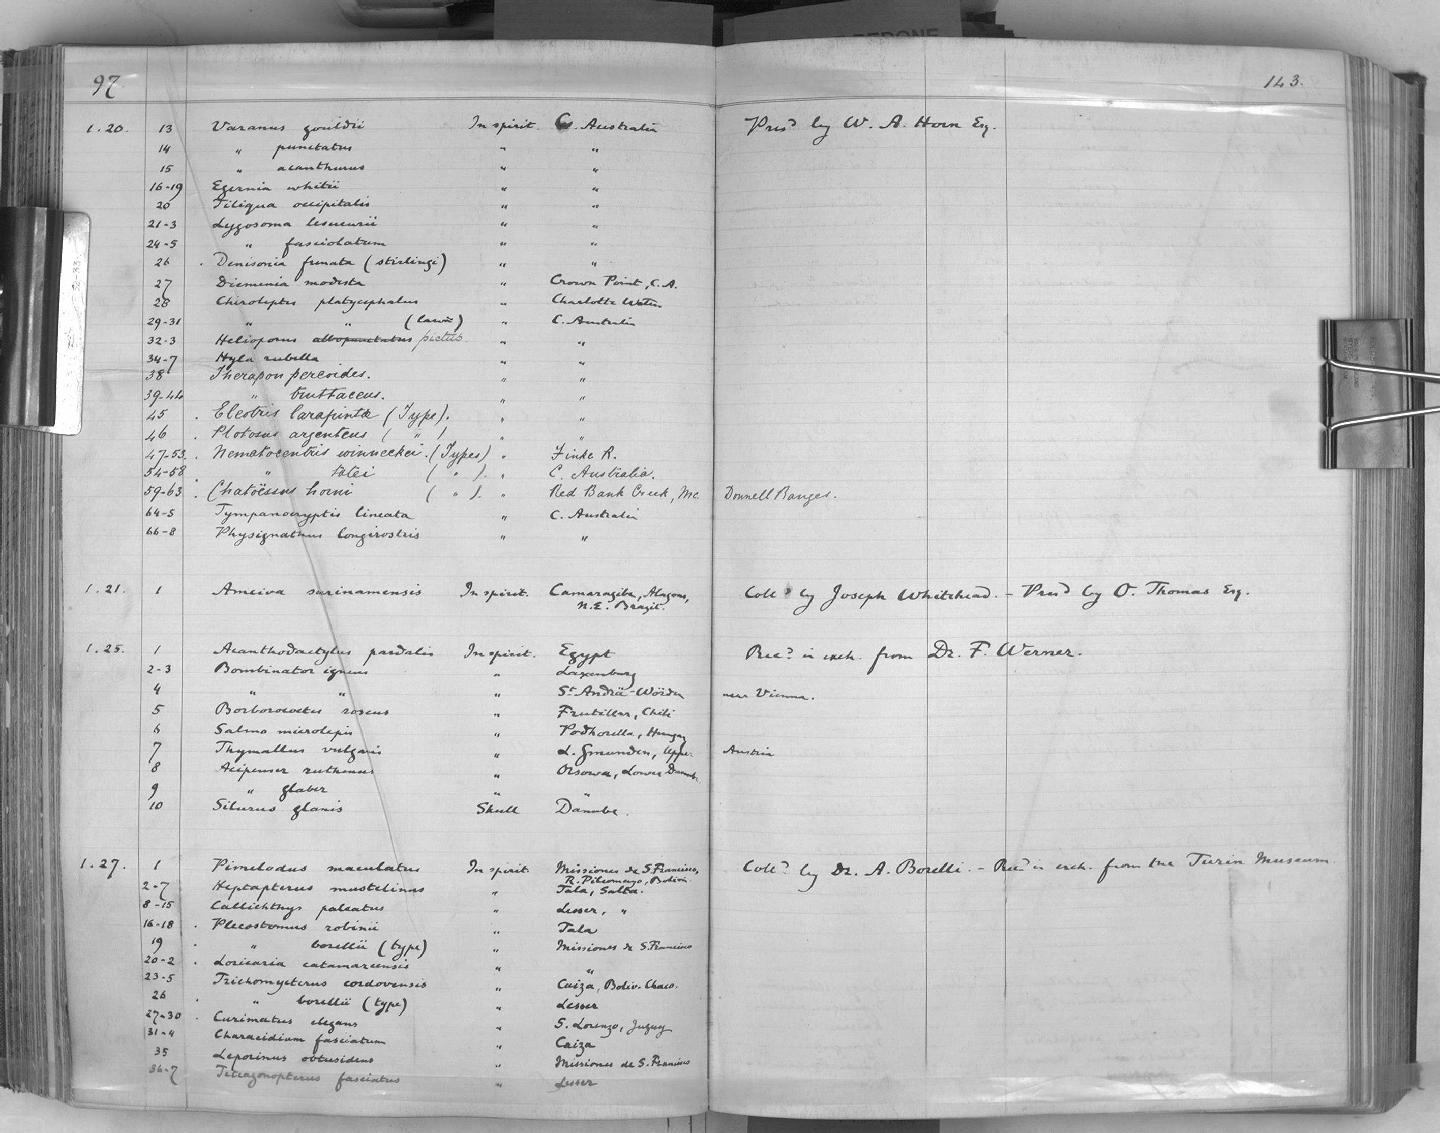 97 143.
1.20. 13 Varanus gouldii In spirit. C. Australia Presd by W. A. Horn Esq.
14 " punctatus " "
15 " acanthurus " "
16-19 Egernia whitii " "
20 Tiliqua occipitalis " "
21-3 Lygosoma lesueurii " "
24-5 " fasciolatum " "
26 . Denisonia frenata (stirlingi) " "
27 Diemenia modesta " Crown Point, C.A.
28 Chiroleptes platycephalus " Charlotte Waters
29-31 " " (larvæ) " C. Australia
32-3 Helioporus albopunctatus pictus " "
34-7 Hyla rubella " "
38 Therapon percoides. " "
39-44 " truttaceus. " "
45 . Eleotris larapintæ (Type). " "
46 . Plotosus argenteus ( " ) " "
47-53. . Nematocentris winneckei. (Types) " Finke R.
54-58 . " tatei ( " ). " C. Australia.
59-63 . Chatoëssus horni ( " ). " Red Bank Creek, Mc Donnell Ranges.
64-5 Tympanocryptis lineata " C. Australia
66-8 Physignathus longirostris " "
1.21. 1 Ameiva surinamensis In spirit. Camaragibe, Alagoas, Colld by Joseph Whitehead. - Presd by O. Thomas Esq.
N.E. Brazil.
1.25. 1 Acanthodactylus pardalis In spirit. Egypt Recd in exch. from Dr. F. Werner.
2-3 Bombinator igneus " Laxenburg
4 " " " St Andrä-Wörden near Vienna.
5 Borborocoetus roseus " Frutillar, Chili
6 Salmo microlepis " Podhorella, Hungary
7 Thymallus vulgaris " L. Gmunden, Upper Austria
8 Acipenser ruthenus " Orsowa, Lower Danube
9 " glaber " "
10 Silurus glanis Skull Danube.
1.27. 1 Pimelodus maculatus In spirit. Missiones de S. Francisco, Colld by Dr. A. Borelli. - Recd in exch. from the Turin Museum
R. Pilcomayo, Bolivia
2-7 Heptapterus mustelinus " Tala, Salta.
8-15 Callichthys paleatus " Lesser, "
16-18 . Plecostomus robinii " Tala
19 . " borellii (type) " Missiones de S. Francisco
20-2 . Loricaria catamarcensis " "
23-5 Trichomycterus cordovensis " Caiza, Boliv. Chaco.
26 . " borellii (type) " Lesser
27-30 . Curimatus elegans " S. Lorenzo, Jujuy
31-4 Characidium fasciatum " Caiza
35 Leporinus obtusidens " Missiones de S. Francisco
36-7 Tetragonopterus fasciatus " Lesser